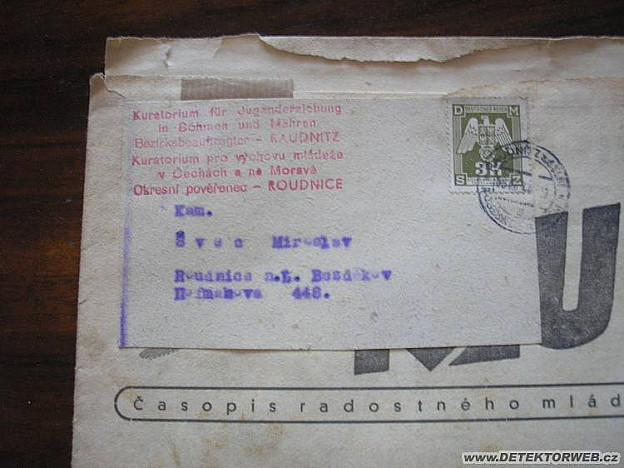 Kuratorium für Jugenderziehung
in Böhmen und Mähren
Bezirksbeauftragter - RAUDNITZ
Kuratorium pro výchovu mládeže
v Čechách a na Moravě
Okresní pověřenec - ROUDNICE
D M
DEUTSCHES REICH
S Z
Kam.
Švec Miroslav
Roudnice n.L. Bezděkov
448.
MU
Časopis radostného mlád
www.DETEKTORWEB.cz